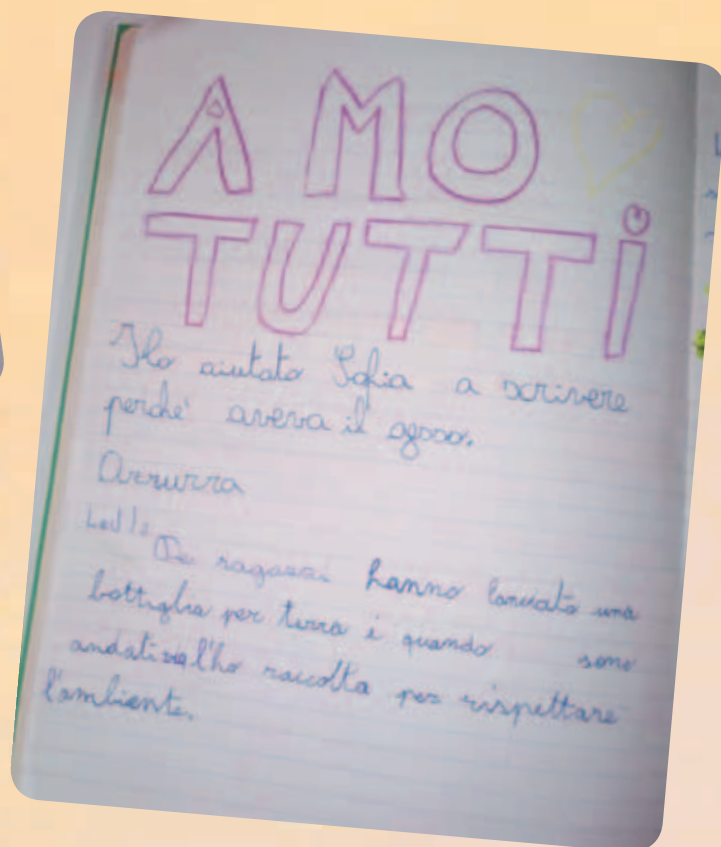 AMO
TUTTI
Ho aiutato Sofia a scrivere
perche' aveva il gesso.
Azzurra
ragazzi hanno lanciato una
bottiglia per terra e quando sono
andati via l'ho raccolta per rispettare
l'ambiente.